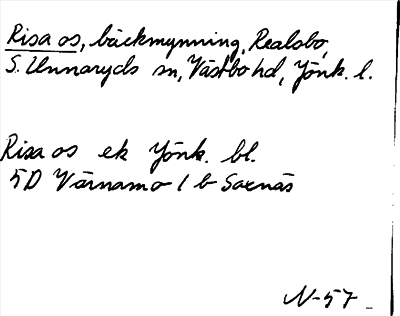 Risa os, bäckmynning, Realsbo,
S. Unnaryds sn, Västbo hd, Jönk. l.
Risa os ek Jönk. bl.
5D Värnamo 1 b Saxnäs
N-57